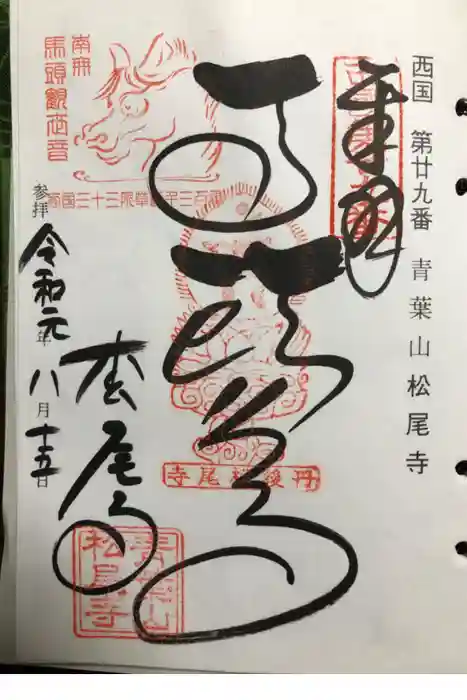 西国 第廿九番 青葉山松尾寺
奉拝
馬頭尊
南無
馬頭観世音
参拝
令和元年八月十五日
松尾寺
丹後松尾寺
青葉山
松尾寺